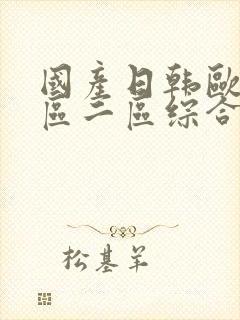 國產日韩歐
區二區综合
松基羊